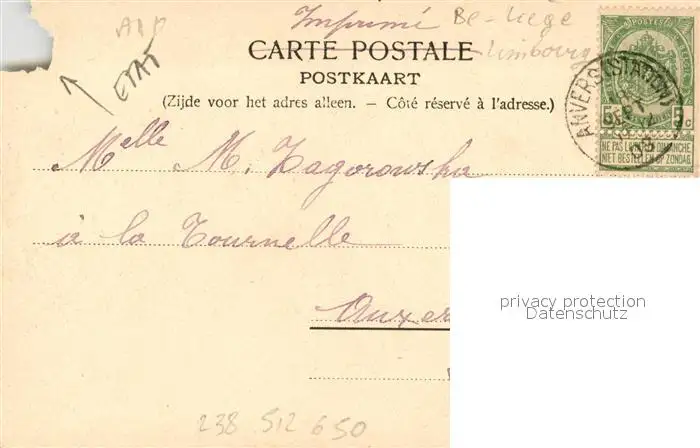 Imprimé
Be-Liege
Limbourg
CARTE POSTALE
POSTKAART
(Zijde voor het adres alleen. — Côté réservé à l'adresse.)
ETAT
POSTES
5c
NE PAS LIVRER LE DIMANCHE
NIET BESTELLEN OP ZONDAG
ANVERS (STATION)
SEPT
Melle M. Zagorowska
à la Tournelle
Auxer
privacy protection
Datenschutz
238 512 650